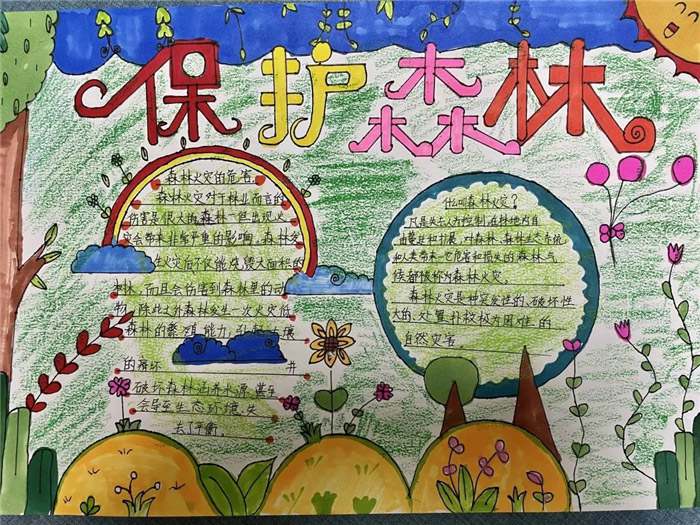 保护森林
森林火灾的危害
森林火灾对于林业而言的
伤害是很大的森林一旦出现火
灾会带来非常严重的影响。森林发
生火灾后不仅能烧毁大面积的
林林、而且会伤害到森林里的动
物、除此之外森林发生一次火灾低
森林的繁殖能力,引起土壤
的破坏 并
破坏森林涵养水源,甚至
会导至生态环境失
去了平衡。
什么叫森林火灾?
凡是失去人为控制,在林地内自
由蔓延和扩展,对森林、森林生态系统
和人类带来一定危害和损失的森林与
候都被称为森林火灾。
森林火灾是种突发性的、破坏性
大的、处置扑救极为困难的
自然灾害